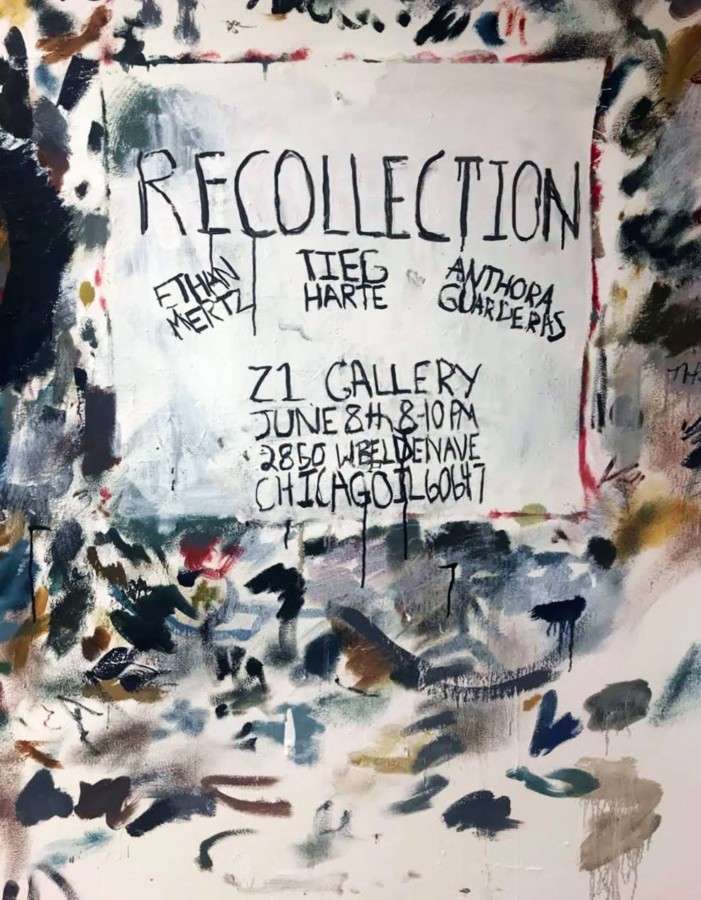 RECOLLECTION
ETHAN
MERTZ
TIEG
HARTE
ANTHORA
GUARDERAS
Z1 GALLERY
JUNE 8th 8-10 PM
2850 W BELDEN AVE
CHICAGO IL 60647